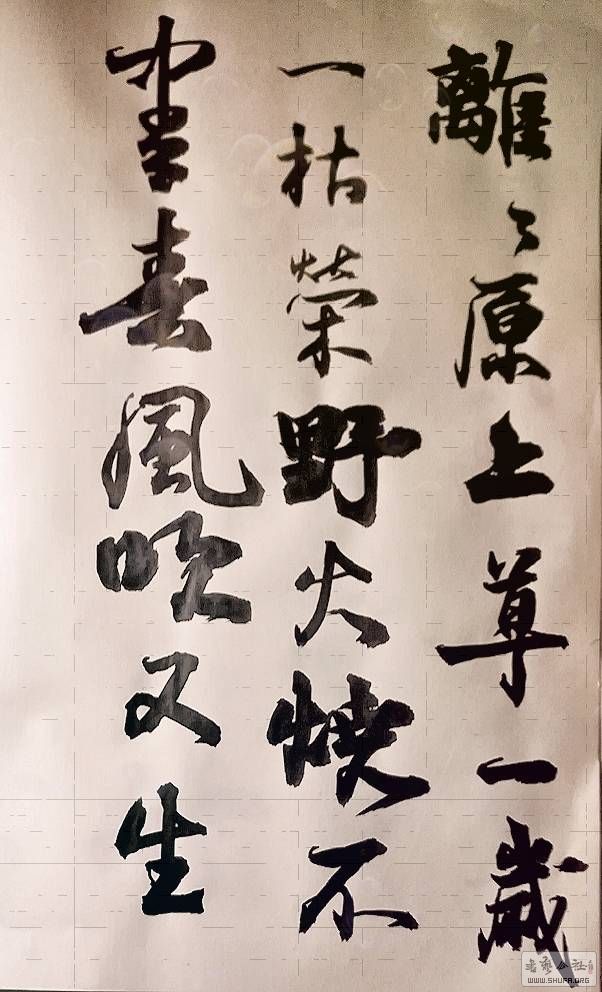 離々原上草一歲
一枯榮野火燒不
盡春風吹又生
书艺公社
WWW.SHUFA.ORG